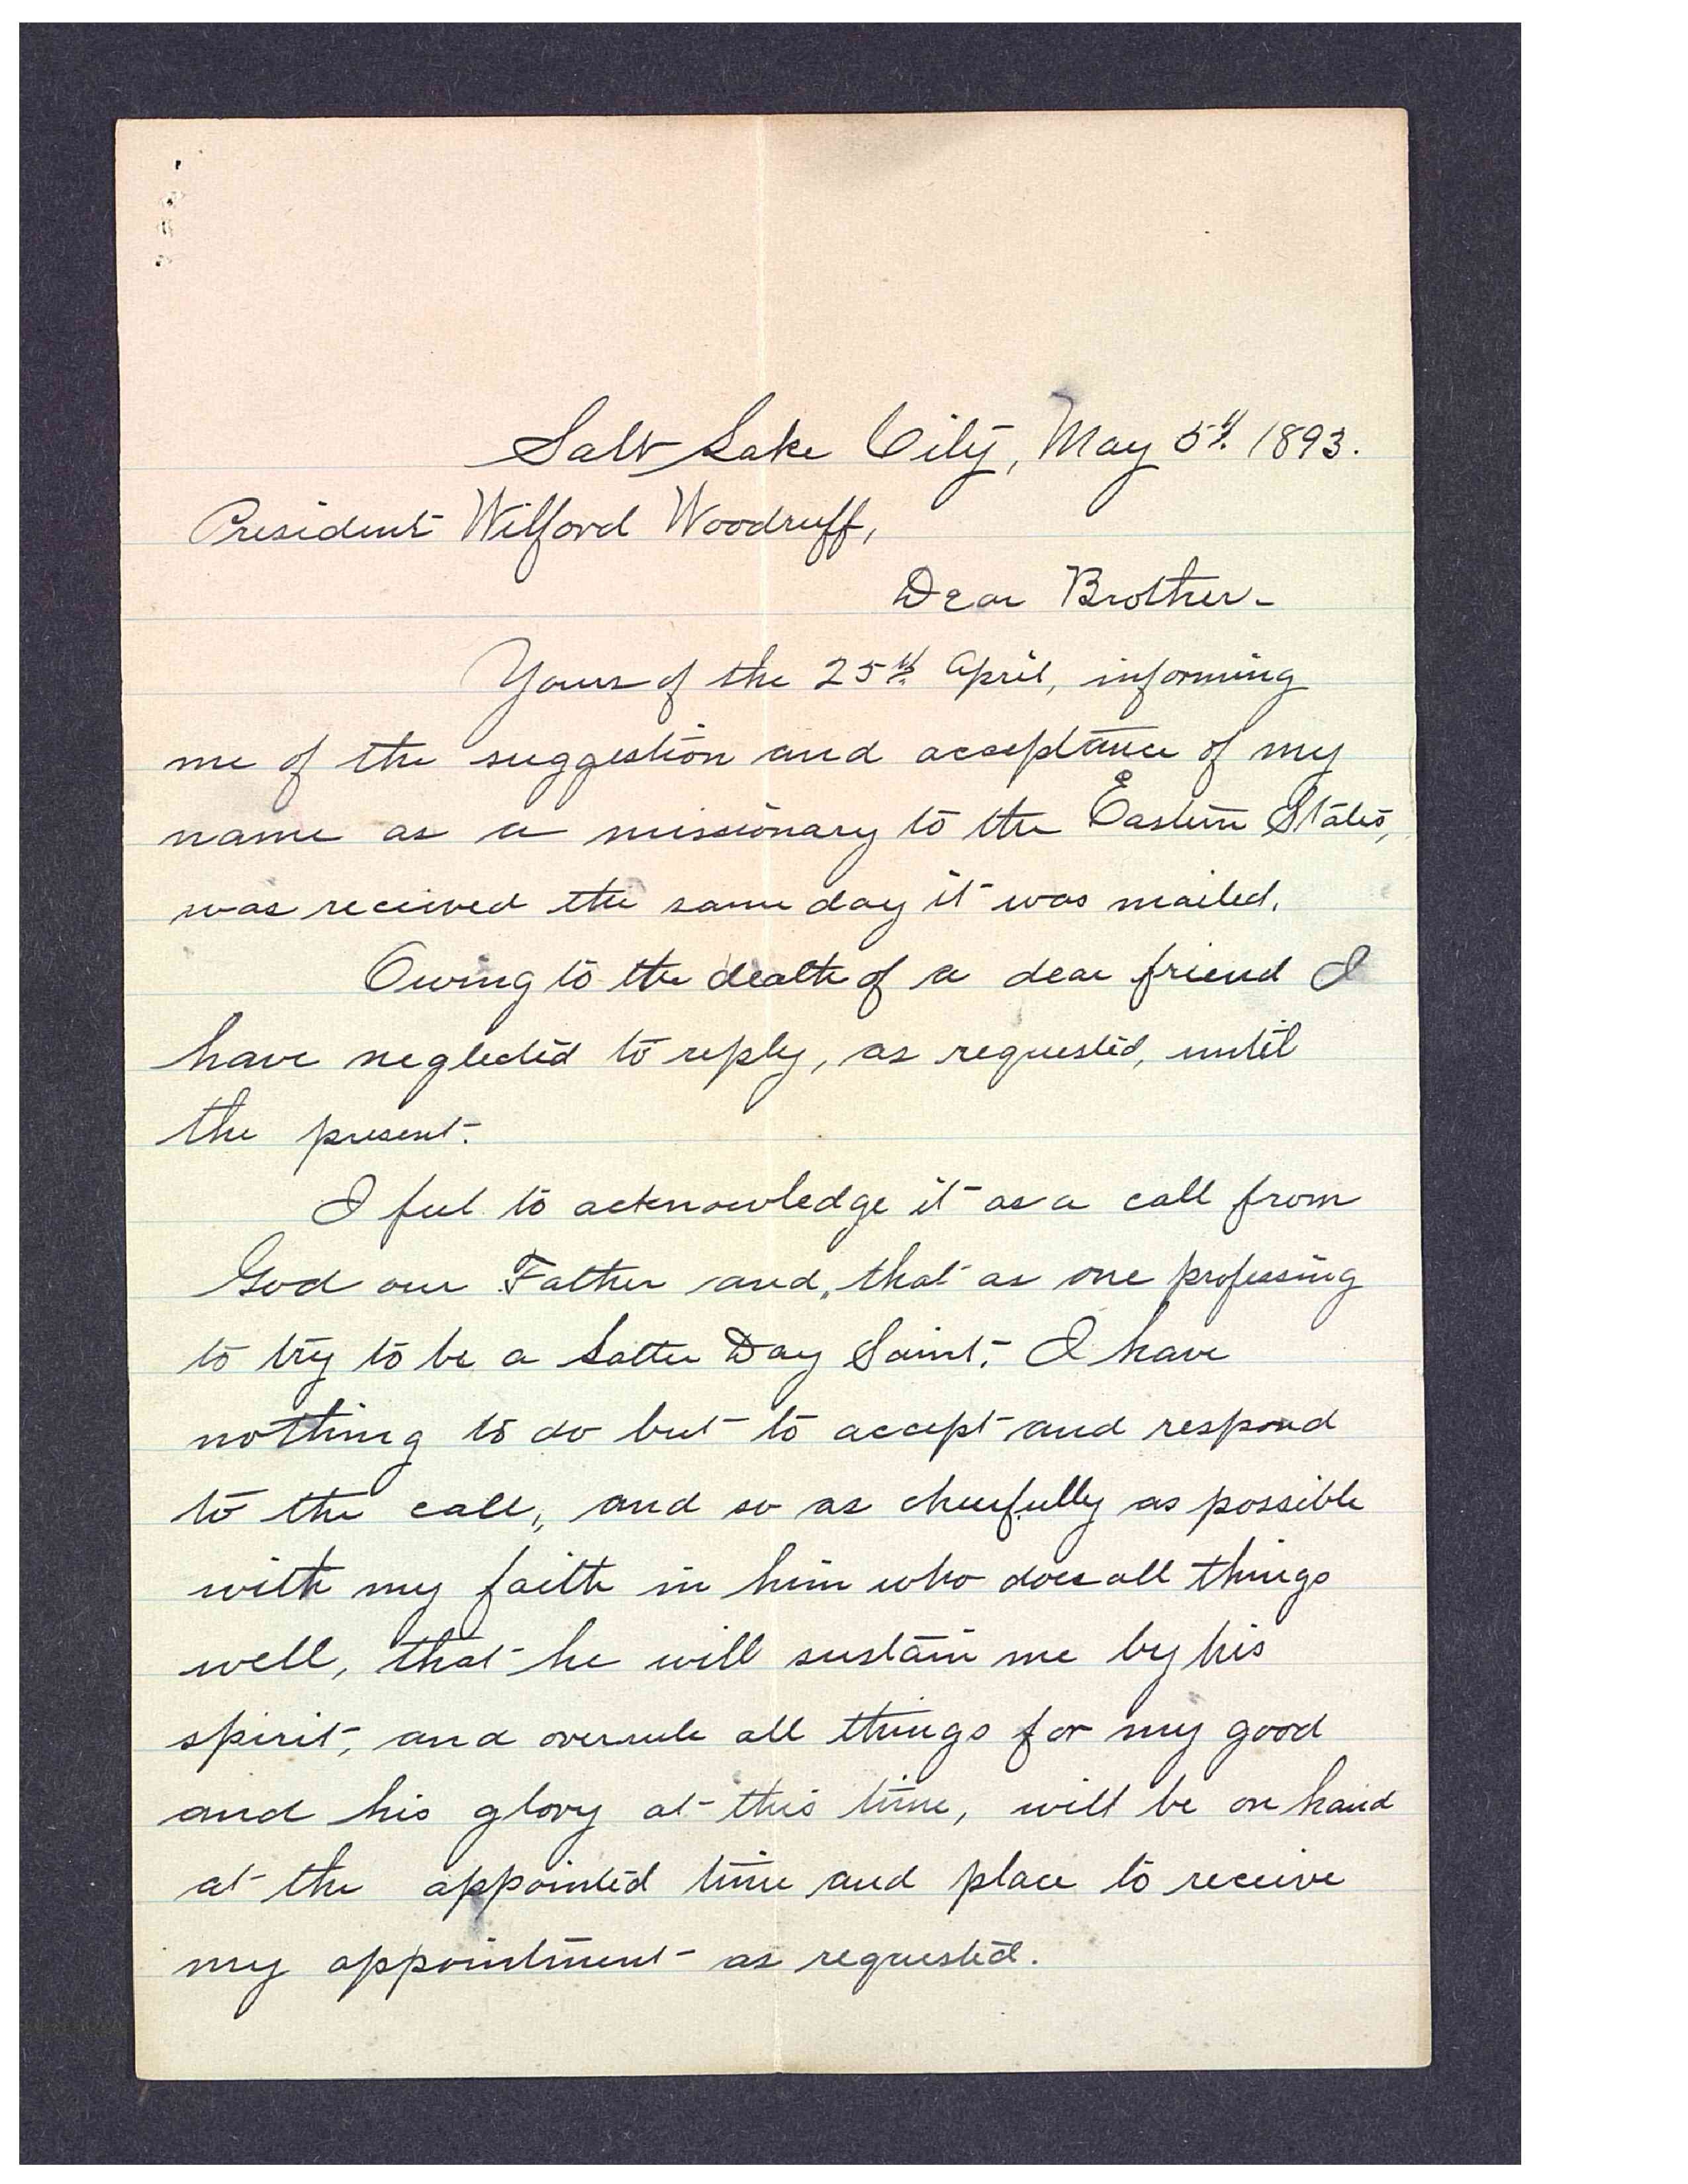 Salt Lake City, May 5th 1893.
President Wilford Woodruff,
Dear Brother-
Yours of the 25th April, informing
me of the suggestion and acceptance of my
name as a missionary to the Eastern States,
was received the same day it was mailed.
Owing to the death of a dear friend I
have neglected to reply, as requested, until
the present.
I feel to acknowledge it as a call from
God our Father and, that as one professing
to try to be a Latter Day Saint, I have
nothing to do but to accept and respond
to the call, and so as cheerfully as possible
with my faith in him who does all things
well, that he will sustain me by his
spirit, and overrule all things for my good
and his glory at this time, will be on hand
at the appointed time and place to receive
my appointment as requested.